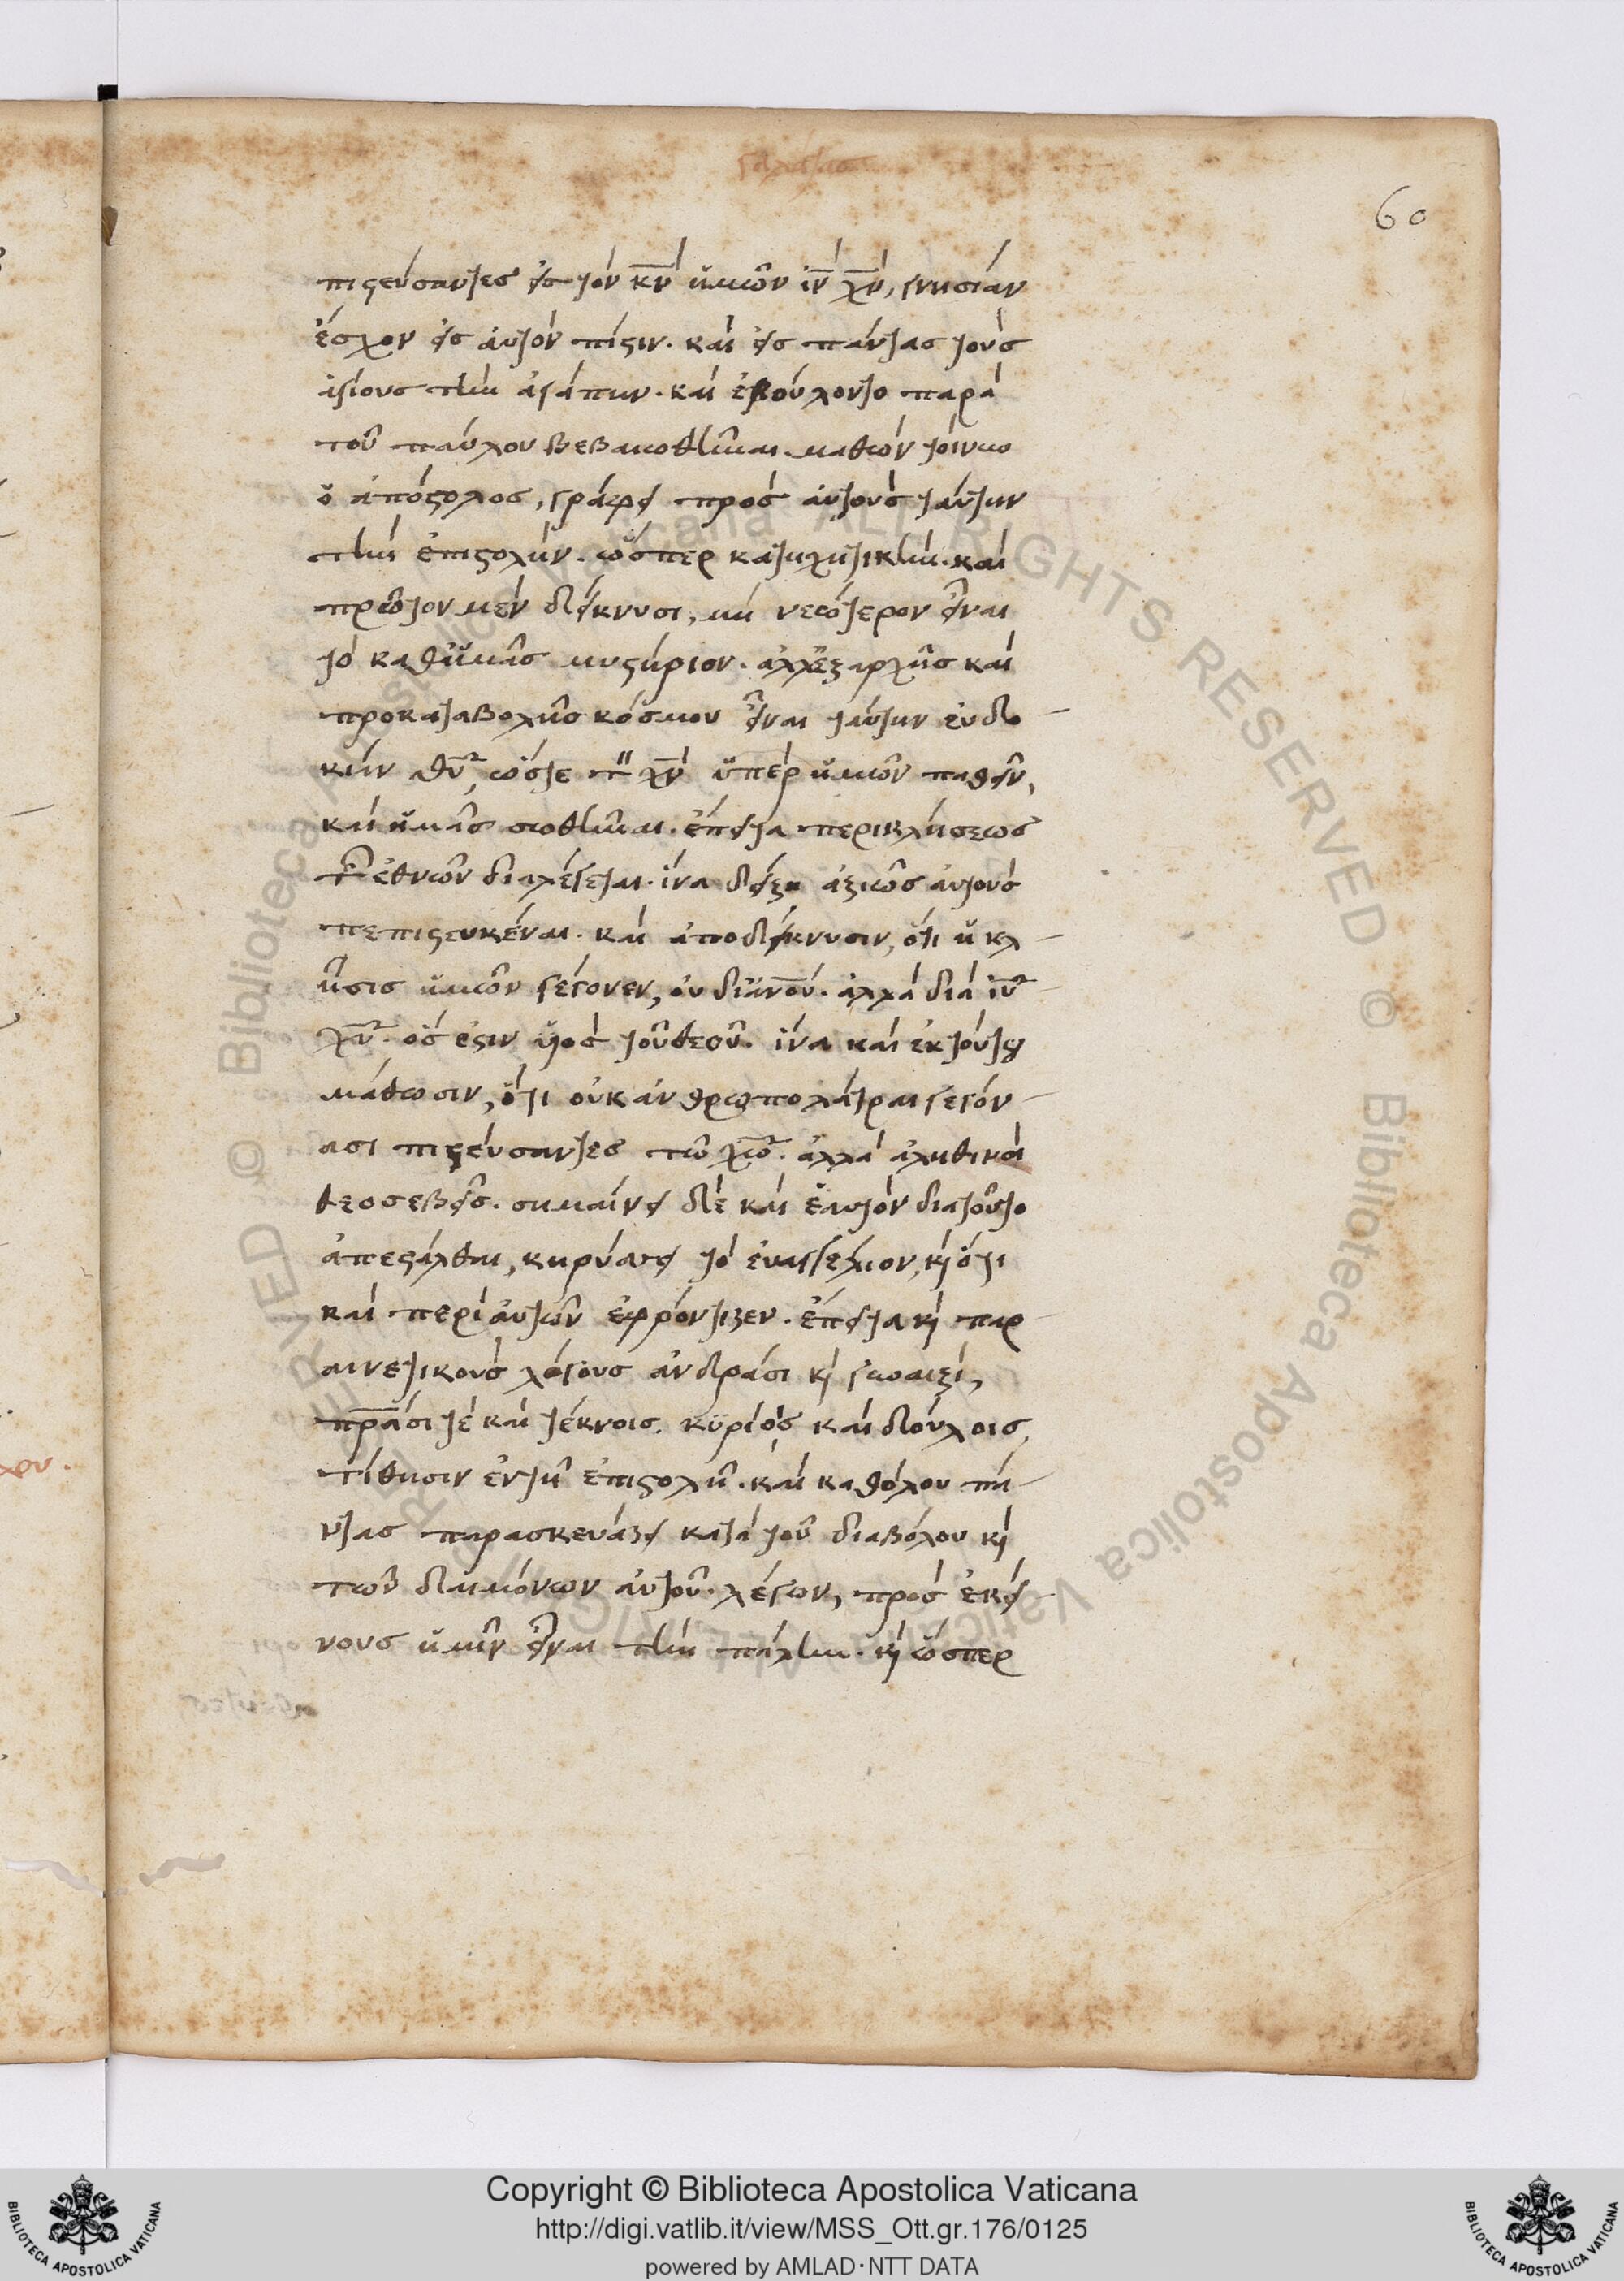 60
πιστεύσαντες εἰς τὸν κν̅ ἡμῶν ιν̅ χν̅, γνησίαν
ἔσχον εἰς αὐτὸν πίστιν. καὶ εἰς πάντας τοὺς
ἁγίους τὴν ἀγάπην. καὶ ἐβούλοντο παρὰ
τοῦ παύλου βεβαιωθῆναι. μαθὼν τοίνυν
ὁ ἀπόστολος, γράφει πρὸς αὐτοὺς ταύτην
τὴν ἐπιστολὴν. ὥσπερ κατηχητικὴν. καὶ
πρῶτον μὲν δείκνυσι, μὴ νεώτερον εἶναι
τὸ καθἡμᾶς μυστήριον. ἀλλἐξαρχῆς καὶ
προκαταβολῆς κόσμου εἶναι ταύτην εὐδο
κίην θυ̅, ὥστε τὸν χν̅ ὑπὲρ ἡμῶν παθεῖν,
καὶ ἡμᾶς σωθῆναι. ἔπειτα περικλήσεως
τῶν ἐθνῶν διαλέγεται. ἵνα δείξη ἀξίως αὐτοὺς
πεπιστευκέναι. καὶ ἀποδείκνυσιν, ὅτι ἡ κλ
ῆσις ἡμῶν γέγονεν, οὐ διἀνου̅. ἀλλὰ διὰ ιυ̅
χυ̅. ὅς ἐστιν υἱὸς τοῦ θεοῦ. ἵνα καὶ ἐκ τούτου
μάθωσιν, ὅτι οὐκ ἀνθρωπολάτραι γεγόν
ασι πιστεύσαντες τῶ χω̅. ἀλλὰ ἀληθινοὶ
θεοσεβεῖς. σημαίνει δὲ καὶ ἑαυτὸν διατοῦτο
ἀπεστάλθαι, κηρύττει τὸ εὐαγγέλιον, κὶ ὅτι
καὶ περὶ αὐτῶν ἐφρόντιζεν. ἔπειτα κὶ παρ
αινετικοὺς λόγους ἀνδράσι κὶ γυναιξί,
πρα̅σι τὲ καὶ τέκνοις. κυρίοις καὶ δούλοις,
τίθησιν ἐν τῆ ἐπιστολῆ. καὶ καθόλου πά
ντας παρασκευάζει κατὰ τοῦ διαβόλου κὶ
τῶν δαιμόνων αὐτοῦ. λέγων, πρὸς ἐκεί
νους ἡμῖν εἶναι τὴν πάλην. κὶ ὥσπερ
Copyright © Biblioteca Apostolica Vaticana
http://digi.vatlib.it/view/MSS_Ott.gr.176/0125
powered by AMLAD·NTT DATA